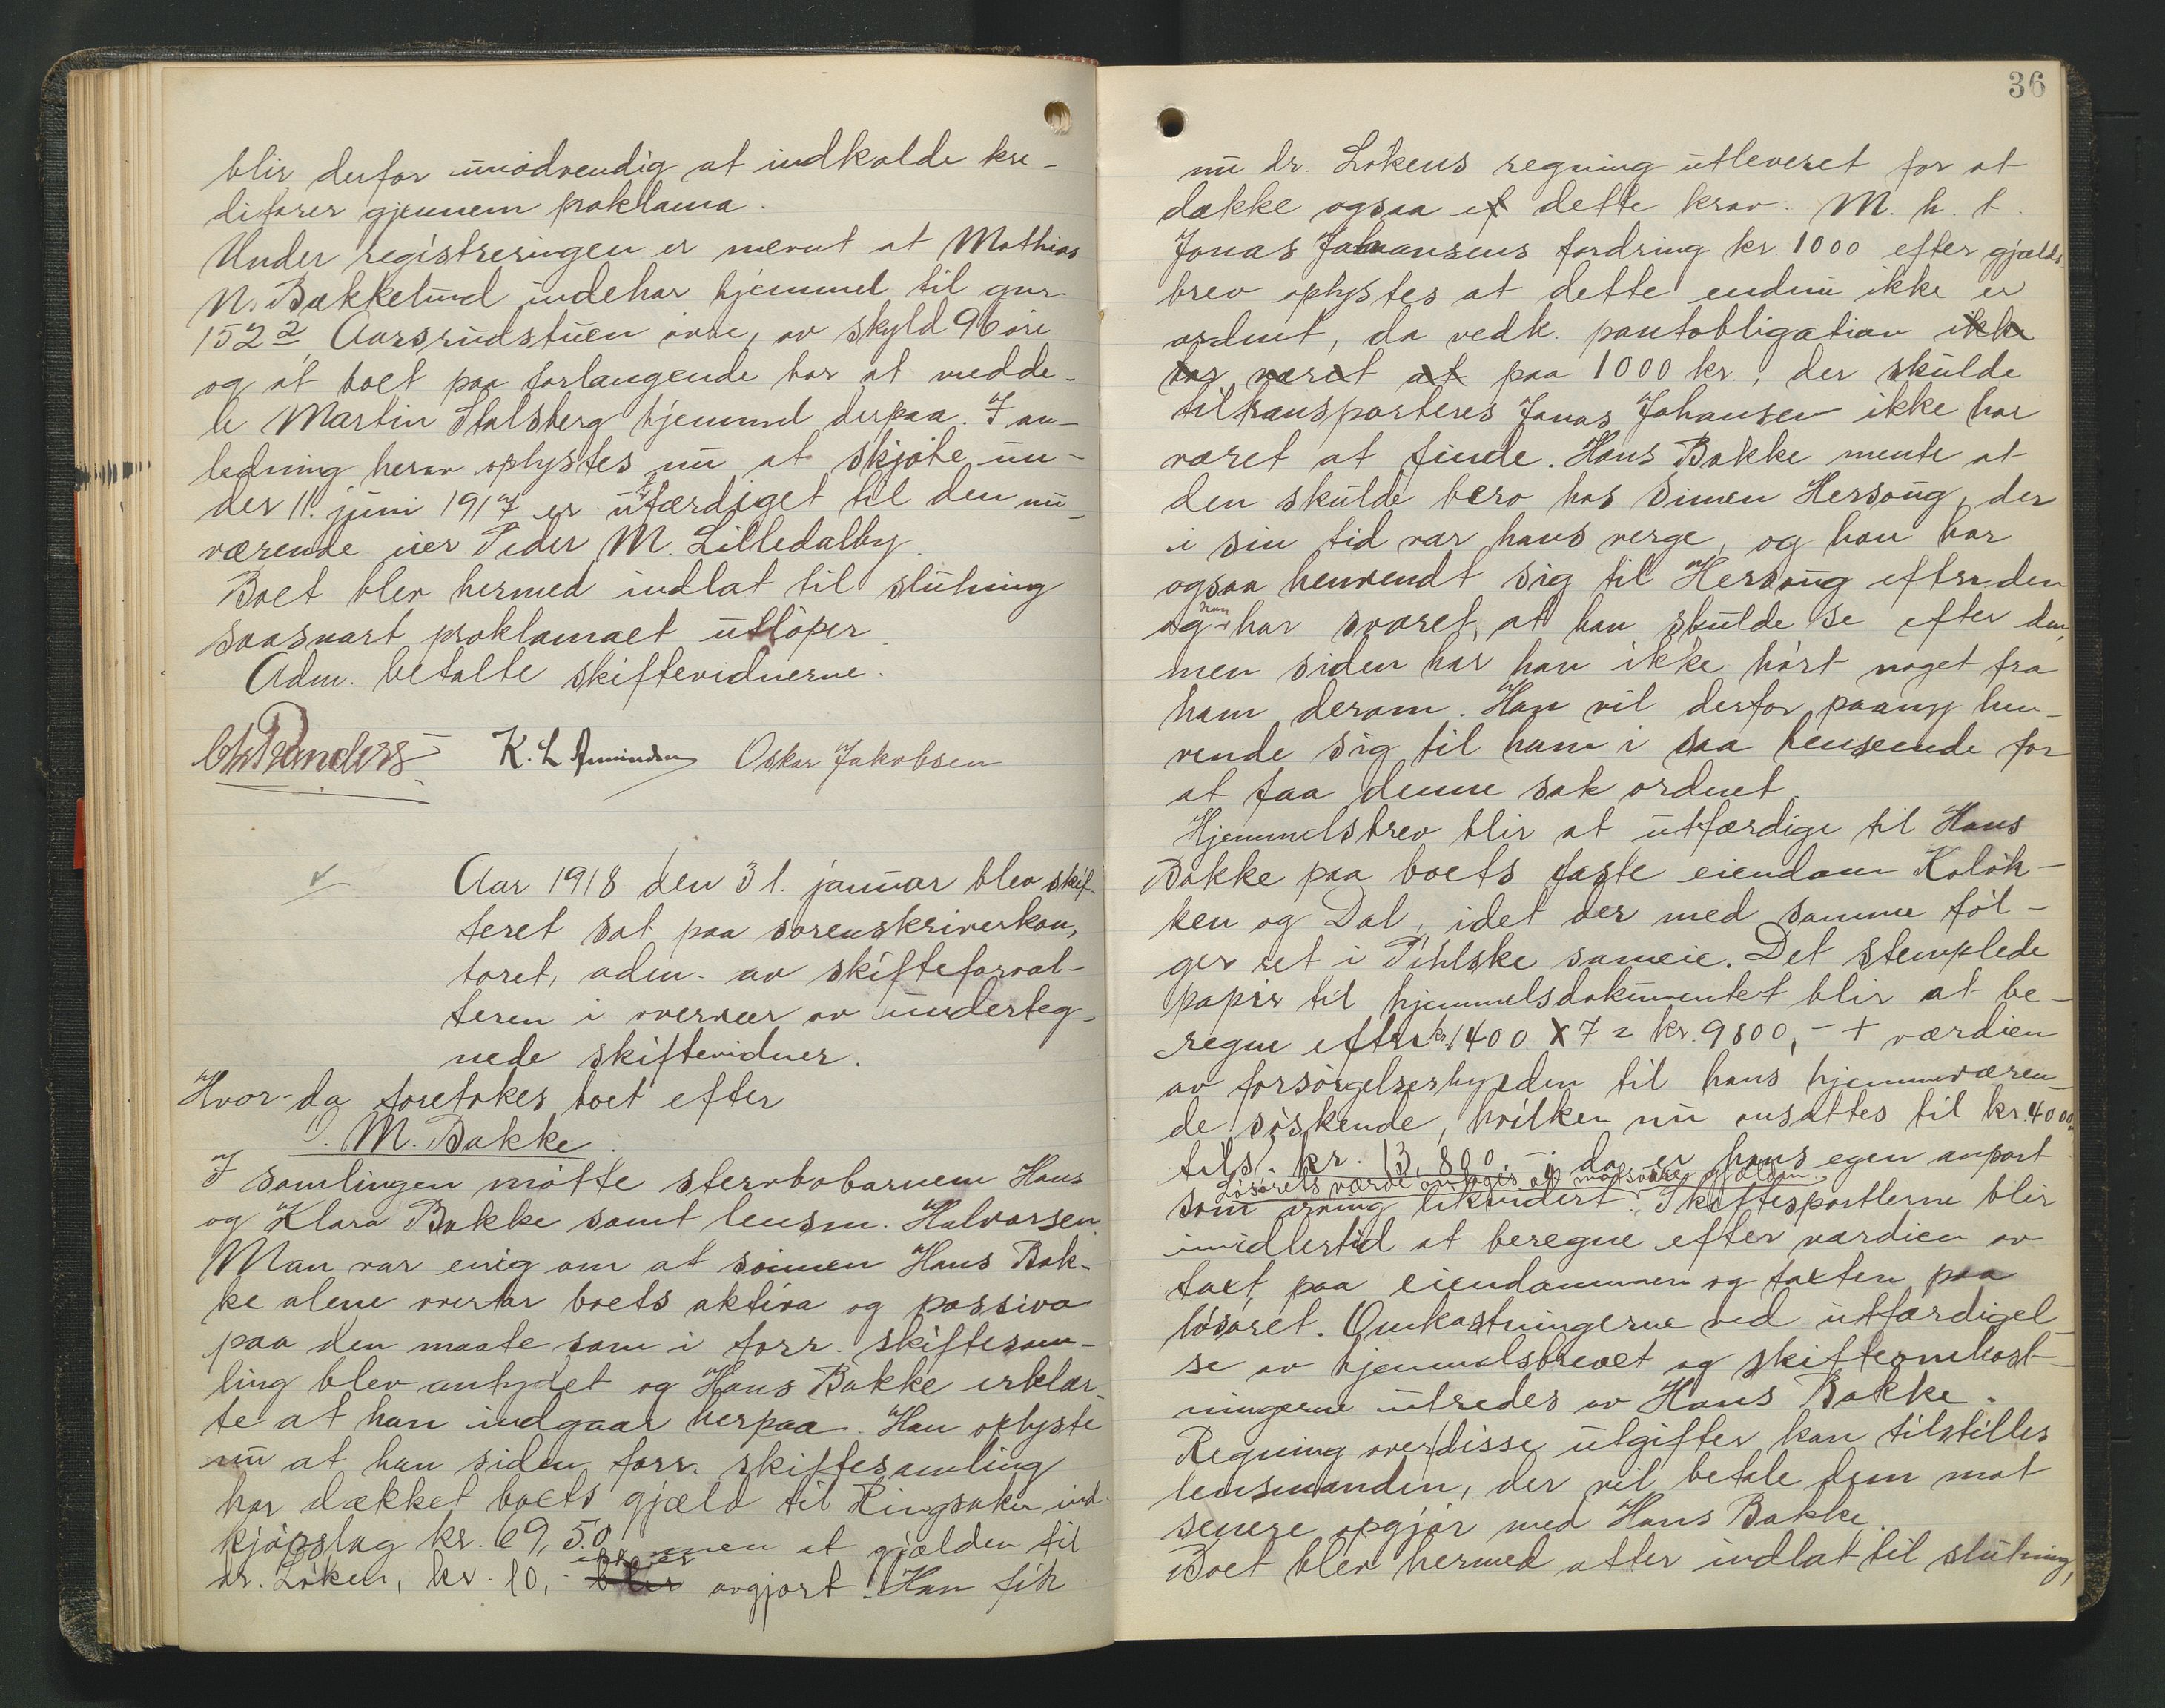 blir derfor unødvendig at indkalde kre-
ditorer gjennem proklama.
Under registreringen er nævnt at Mathias
N. Bækkelund indehar hjemmel til gnr
152² Aarsrudstuen øvre, av skyld 96 øre
og at boet paa forlangende har at medde-
le Martin Stalsberg hjemmel derpaa. I an-
ledning herav oplystes nu at skjøte un-
der 11. juni 1917 er utfærdiget til den nu-
værende eier Peder M. Lilledalby.
Boet blev hermed indlat til slutning
saasnart proklamaet utløper.
Adm. betalte skiftevidnerne.
K. L. Amundsen Oskar Jakobsen
Aar 1918 den 31. januar blev skif-
teret sat paa sorenskriverkon-
toret, adm. av skifteforval-
teren i overvær av underteg-
nede skiftevidner.
Hvor da foretokes boet efter
1). M. Bakke.
I samlingen møtte stervbobarnene Hans
og Klara Bakke samt lensm. Halvorsen.
Man var enig om at sønnen Hans Bak-
ke alene overtar boets aktiva og passiva
paa den maate som i forr. skiftesam-
ling blev antydet og Hans Bakke erklær-
te at han indgaar herpaa. Han oplyste
nu at han siden forr. skiftesamling
har dækket boets gjæld til Ringsaker ind-
kjøpslag kr. 69,50 men at gjælden til
dr. Løken, kr. 10,- ikke er blir avgjort. Han fik
36
nu dr. Løkens regning utleveret for at
dække ogsaa et dette krav. M. h. t.
Jonas Johansens fordring kr. 1000 efter gjælds-
brev oplystes at dette endnu ikke er
ordnet, da vedk. pantobligation ikke
har været at paa 1000 kr., der skulde
tiltransporteres Jonas Johansen ikke har
været at finde. Hans Bakke mente at
den skulde bero hos Simen Hersoug, der
i sin tid var hans verge, og han har
ogsaa henvendt sig til Hersoug efter den
og han har svaret, at han skulde se efter den,
men siden har han ikke hørt noget fra
ham derom. Han vil derfor paany hen-
vende sig til ham i saa henseende for
at faa denne sak ordnet.
Hjemmelsbrev blir at utfærdige til Hans
Bakke paa boets faste eiendom Koløk-
ken og Dal, idet der med samme føl-
ger ret i Pihlske sameie. Det stemplede
papir til hjemmelsdokumentet blir at be-
regne efter kr. 1400 x 7 = kr. 9800,- + værdien
av forsørgelsesbyrden til hans hjemmeværen-
de søskende, hvilken nu ansattes til kr. 4000,
tils. kr. 13,800.- i da er hans egen anpart
Løsørets værdi antages at motsvare gjælden.
som arving likvidert. Skifteportlerne blir
imidlertid at beregne efter værdien av
taxt paa eiendommen og taxten paa
løsøret. Omkostningerne ved utfærdigel-
se av hjemmelsbrevet og skifteomkost-
ningerne utredes av Hans Bakke.
Regning over disse utgifter kan tilstilles
lensmanden, der vil betale dem mot
senere opgjør med Hans Bakke.
Boet blev hermed atter indlat til slutning,